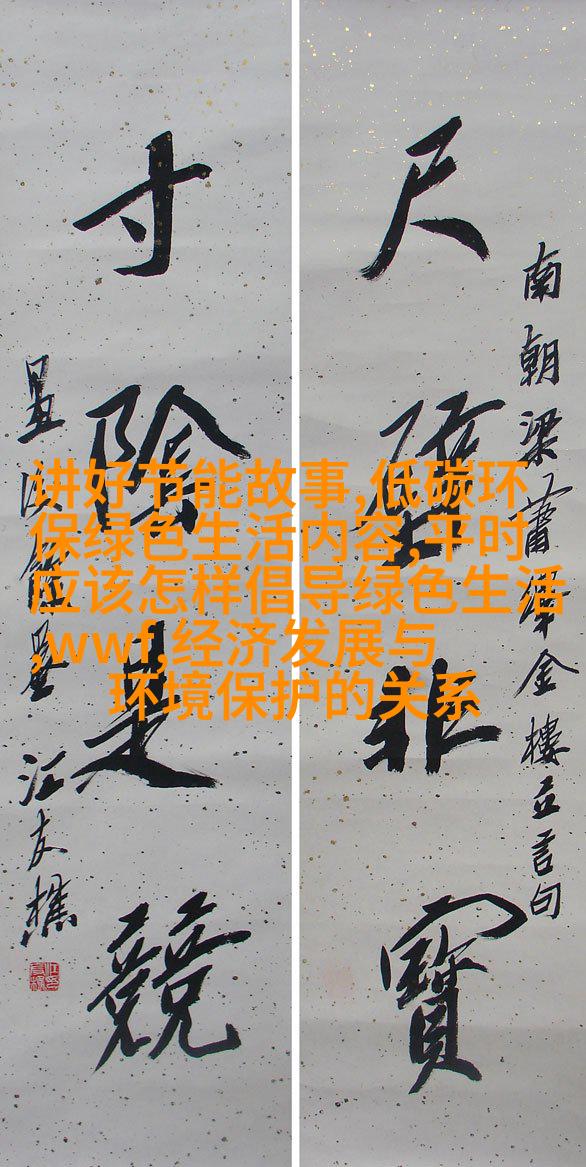 南朝梁蕭繹金樓立言句
尺璧非寶
寸陰是競
汪友樵
讲好节能故事,低碳环
保绿色生活内容,平时
应该怎样倡导绿色生活
,wwf,经济发展与
环境保护的关系